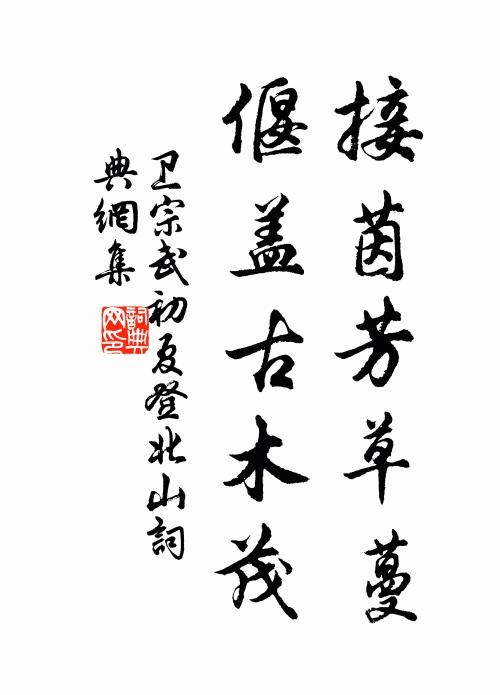 接茵芳草蔓
偃盖古木茂
卫宗武初夏登北山詞
典網集
詞典
网印